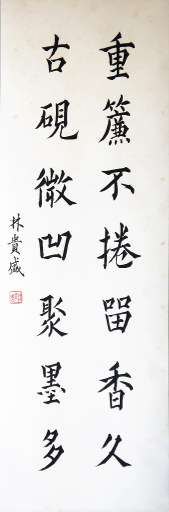 重簾不捲留香久
古硯微凹聚墨多
林貴盛